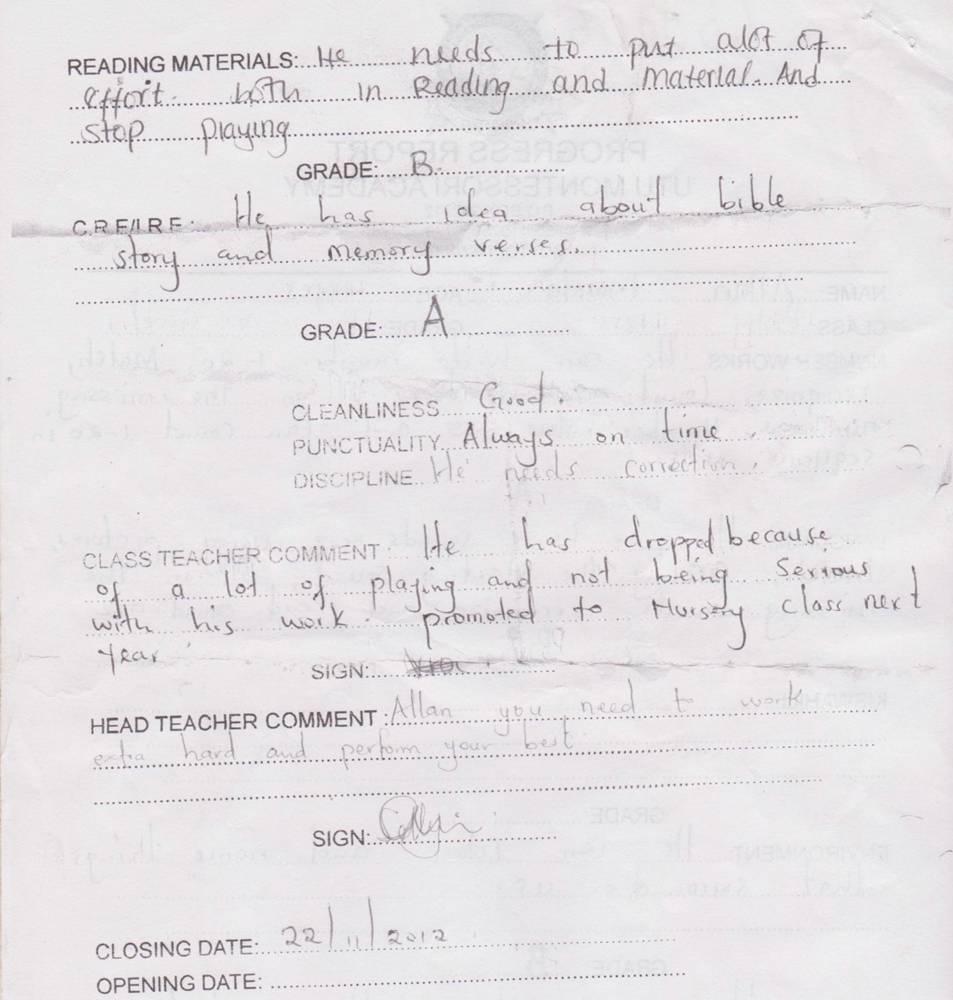 READING MATERIALS: He needs to put alot of
effort both in Reading and material. And
stop playing
GRADE: B.
C.R.E/I.R.E: He has idea about bible
story and memory verses.
GRADE: A
CLEANLINESS Good.
PUNCTUALITY Always on time.
DISCIPLINE He needs correction.
CLASS TEACHER COMMENT: He has dropped because
of a lot of playing and not being serious
with his work. promoted to Nursery class next
year.
SIGN:
HEAD TEACHER COMMENT: Allan you need to work
extra hard and perform your best
SIGN:
CLOSING DATE: 22/11/2012
OPENING DATE: